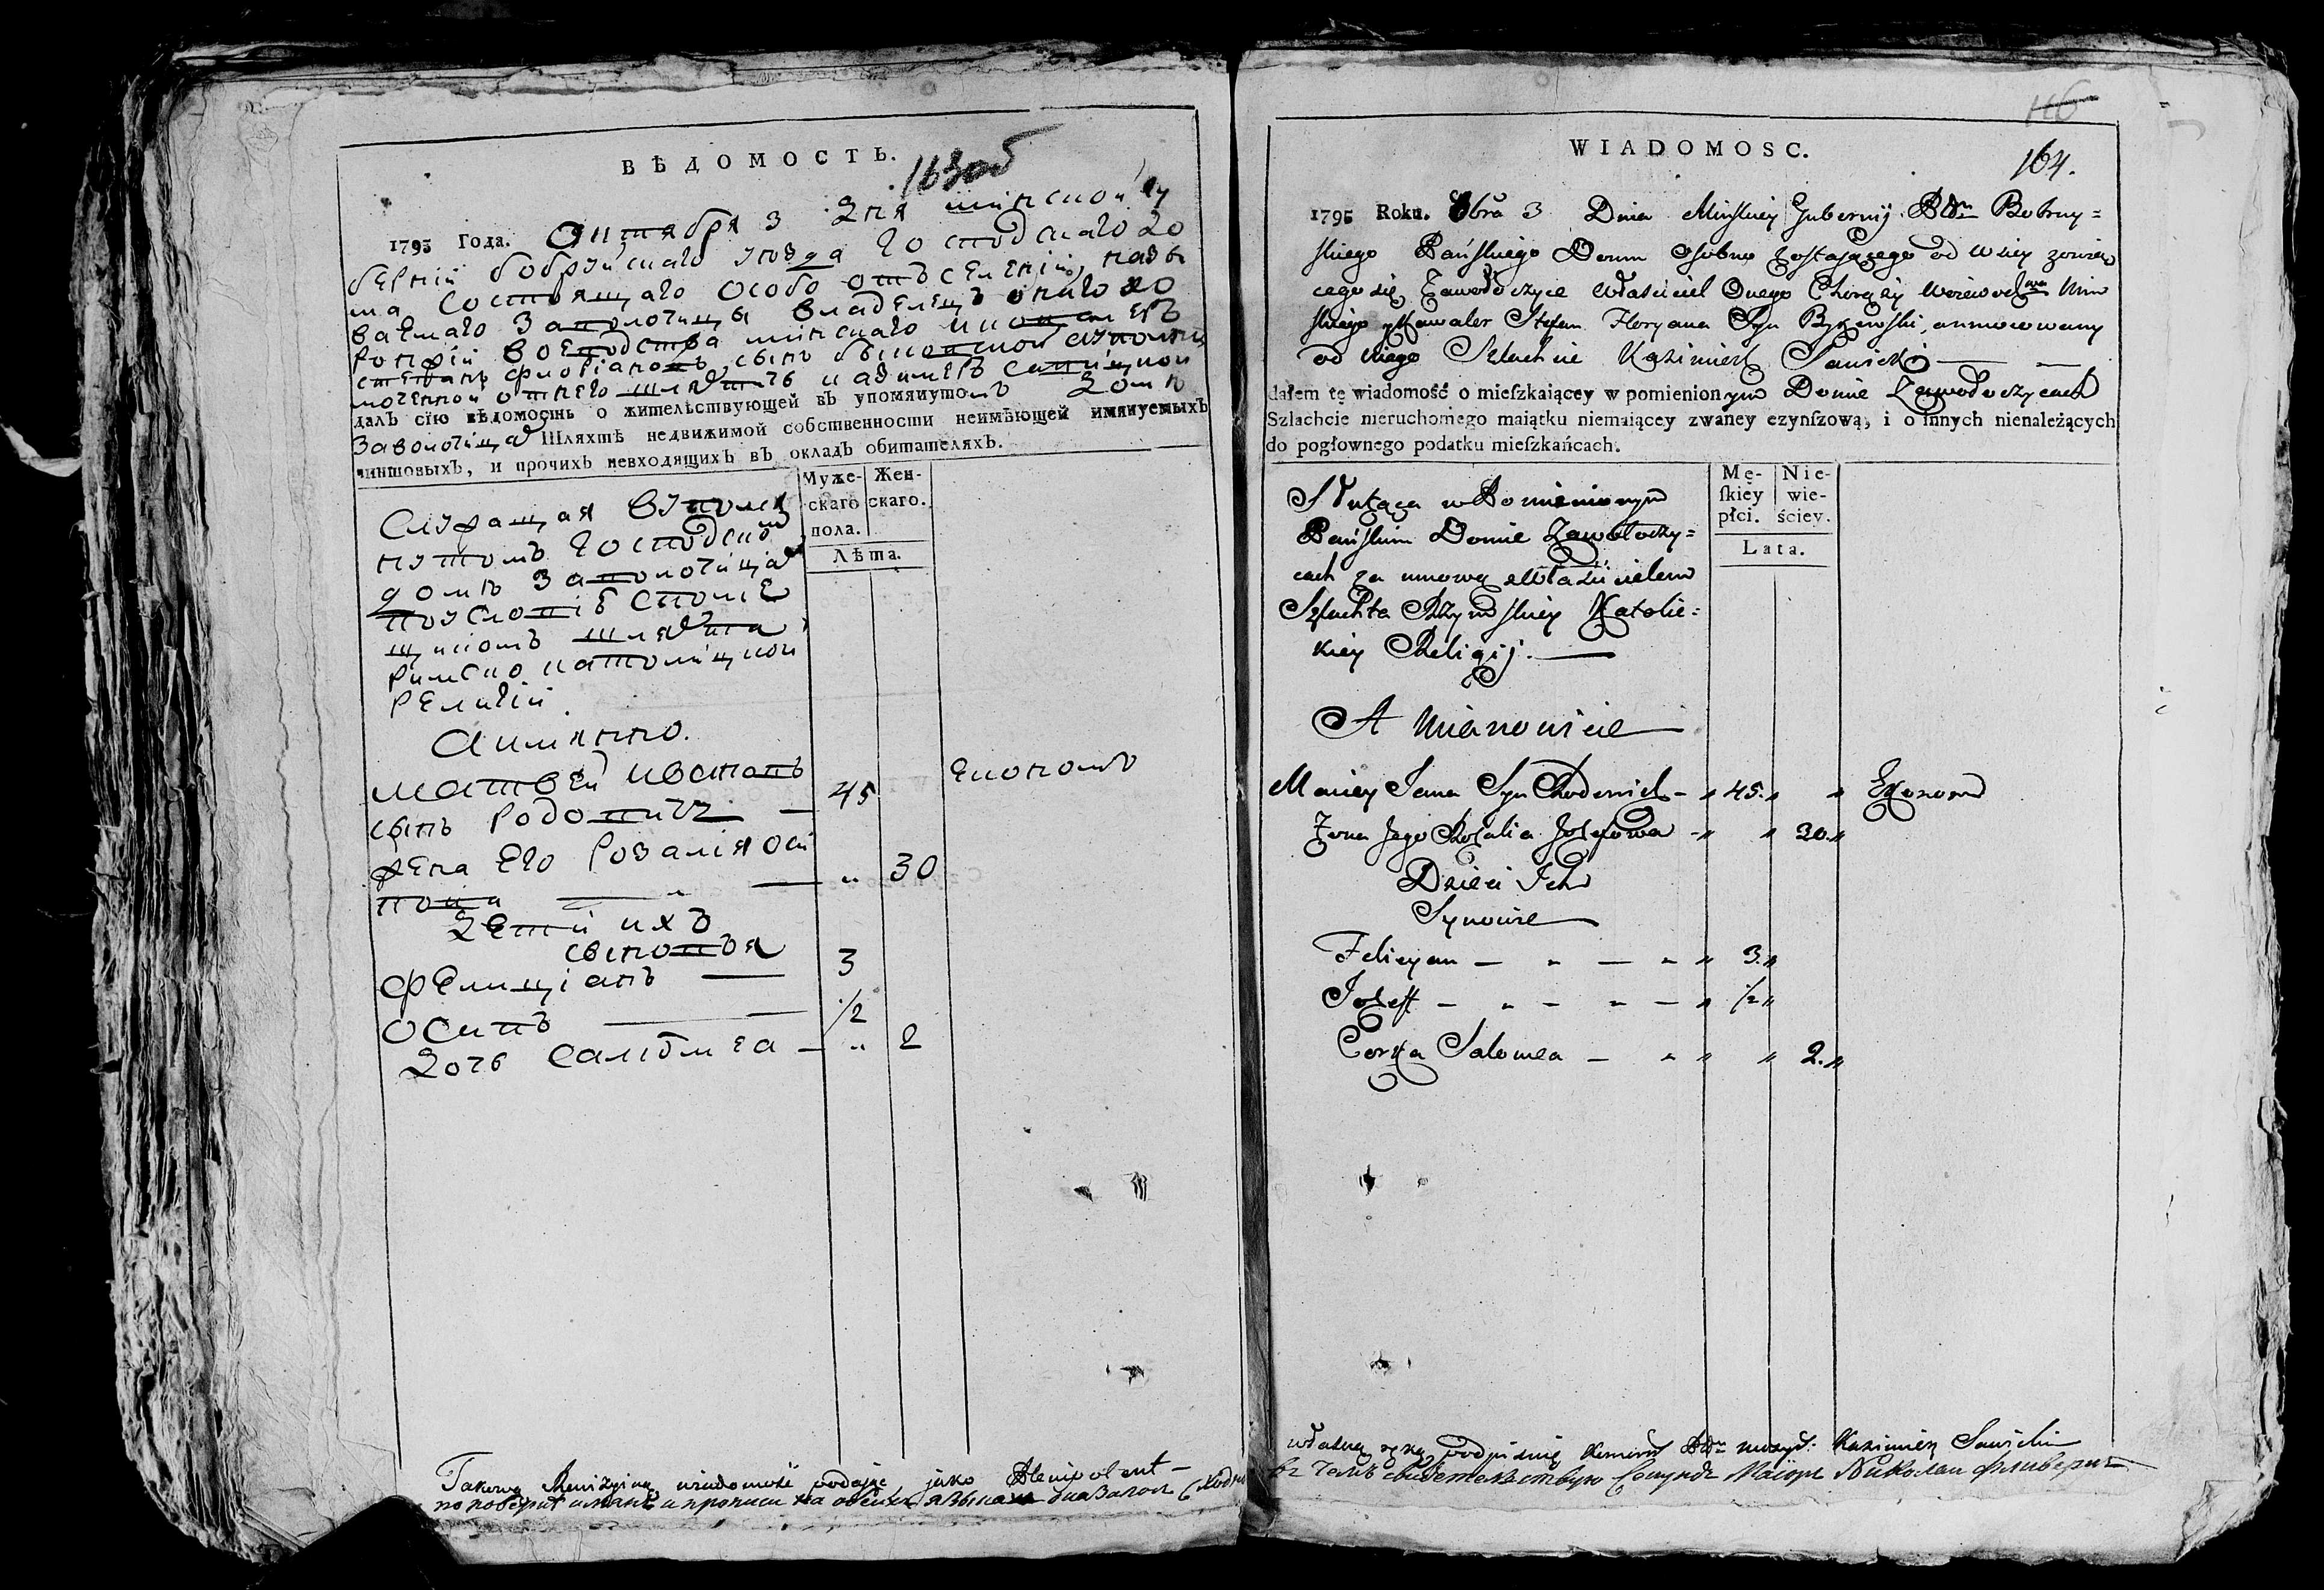 ВѢДОМОСТЬ.
163об
1795 Года. Октября 3 Дня минской гу
берніи бобруйскаго уезда Господскаго до
ма состоящаго особо отъ селеніи, назы
ваемаго Заволочицы владелецъ онаго хо
ронжій воеводства минскаго икавалеръ
стефанъ флоріановъ сынъ быковской ауполно
моченной отнего шляхтичь казимеръ савицкой
далъ сїю вѣдомость о жительствующей въ упомянутомъ Доме
Заволочицах Шляхтѣ недвижимой собственности неимѣющей имянуемыхъ
чиншовыхъ, и прочихъ невходящихъ въ окладъ обитателяхъ.
Муже-скаго пола. Жен-скаго.
Лѣта.
Служащая вупомя
нутомъ Господском
доме Заволочицах
поусловіе спомѣ
щикомъ шляхта
римско католицкой
религіи.
Аимянно.
матвей ивановъ
сынъ Родовичъ — 45 економъ
жена его Розалія оси
пова — " — " 30
Дети ихъ
сыновья
Фелиціанъ — 3
осипъ — 1/2
Дочь саломеа — " 2
Takową Rewizyiną wiadomość podaję jako Plenipotent —
WIADOMOSC.
116
164.
1795 Roku. 8bra 3 Dnia Minskiey Gubernij Pttu Bobruy=
skiego Pańskiego Domu osobno zostaiącego od wsiey zowią
cego się Zawołoczyce Właściciel Onego Chorąży Woiewodztwa Min
skiego y Kawaler Stefan Floryana Syn Bykowski, aumocowany
od niego Szlachcic Kazimierz Sawicki — —
dałem tę wiadomość o mieſzkaiącey w pomienionym Domie Zawołoczycach
Szlachcie nieruchomego maiątku niemaiącey zwaney czynſzową, i o innych nienależących
do pogłownego podatku mieſzkańcach.
Mę-ſkiey płci. Nie-wie-ściey.
Lata.
Służąca w Pomienionym
Pańskim Domie Zawołoczy=
cach za umową zWłaścicielem
Szlachta Rzymskiey Katolic=
kiey Religij. —
A Mianowicie —
Maciey Jana Syn Rodowicz — " 45. " " Ekonom
Żona Jego Rozalia Jozefowa — " " 30. "
Dzieci Ich
Synowie
Felicyan — " — " " 3. "
Jozeff — " — " — " 1/2 "
Corka Salomea — " " " 2. "
własną ręką podpisuię Kazimierz Sawicki
въ чемъ свидетельствую Секундъ Маіоръ Николай